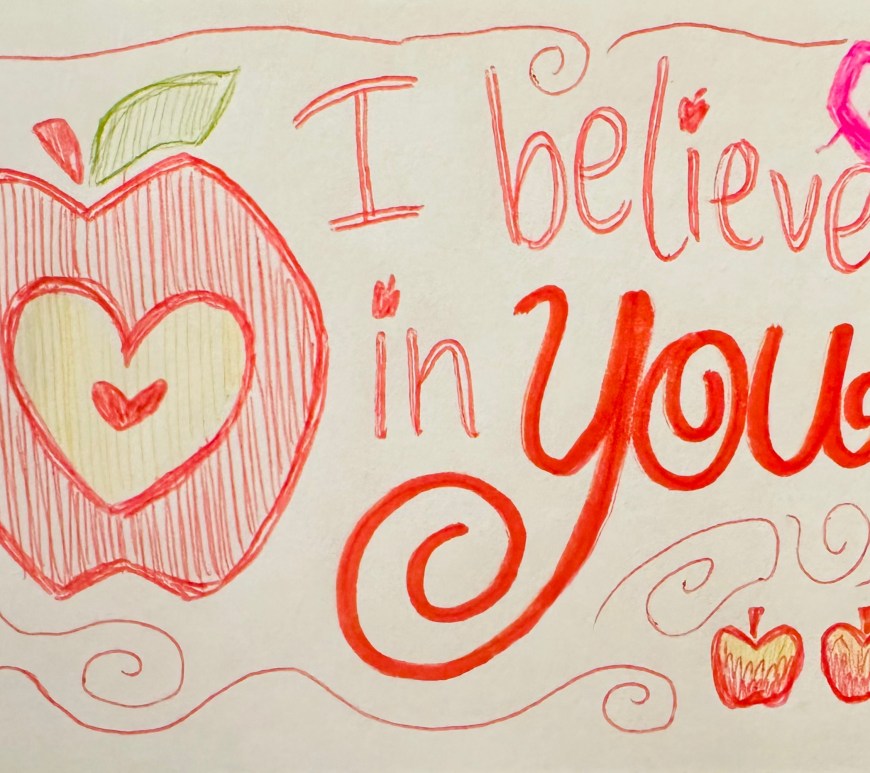 I believe
in you